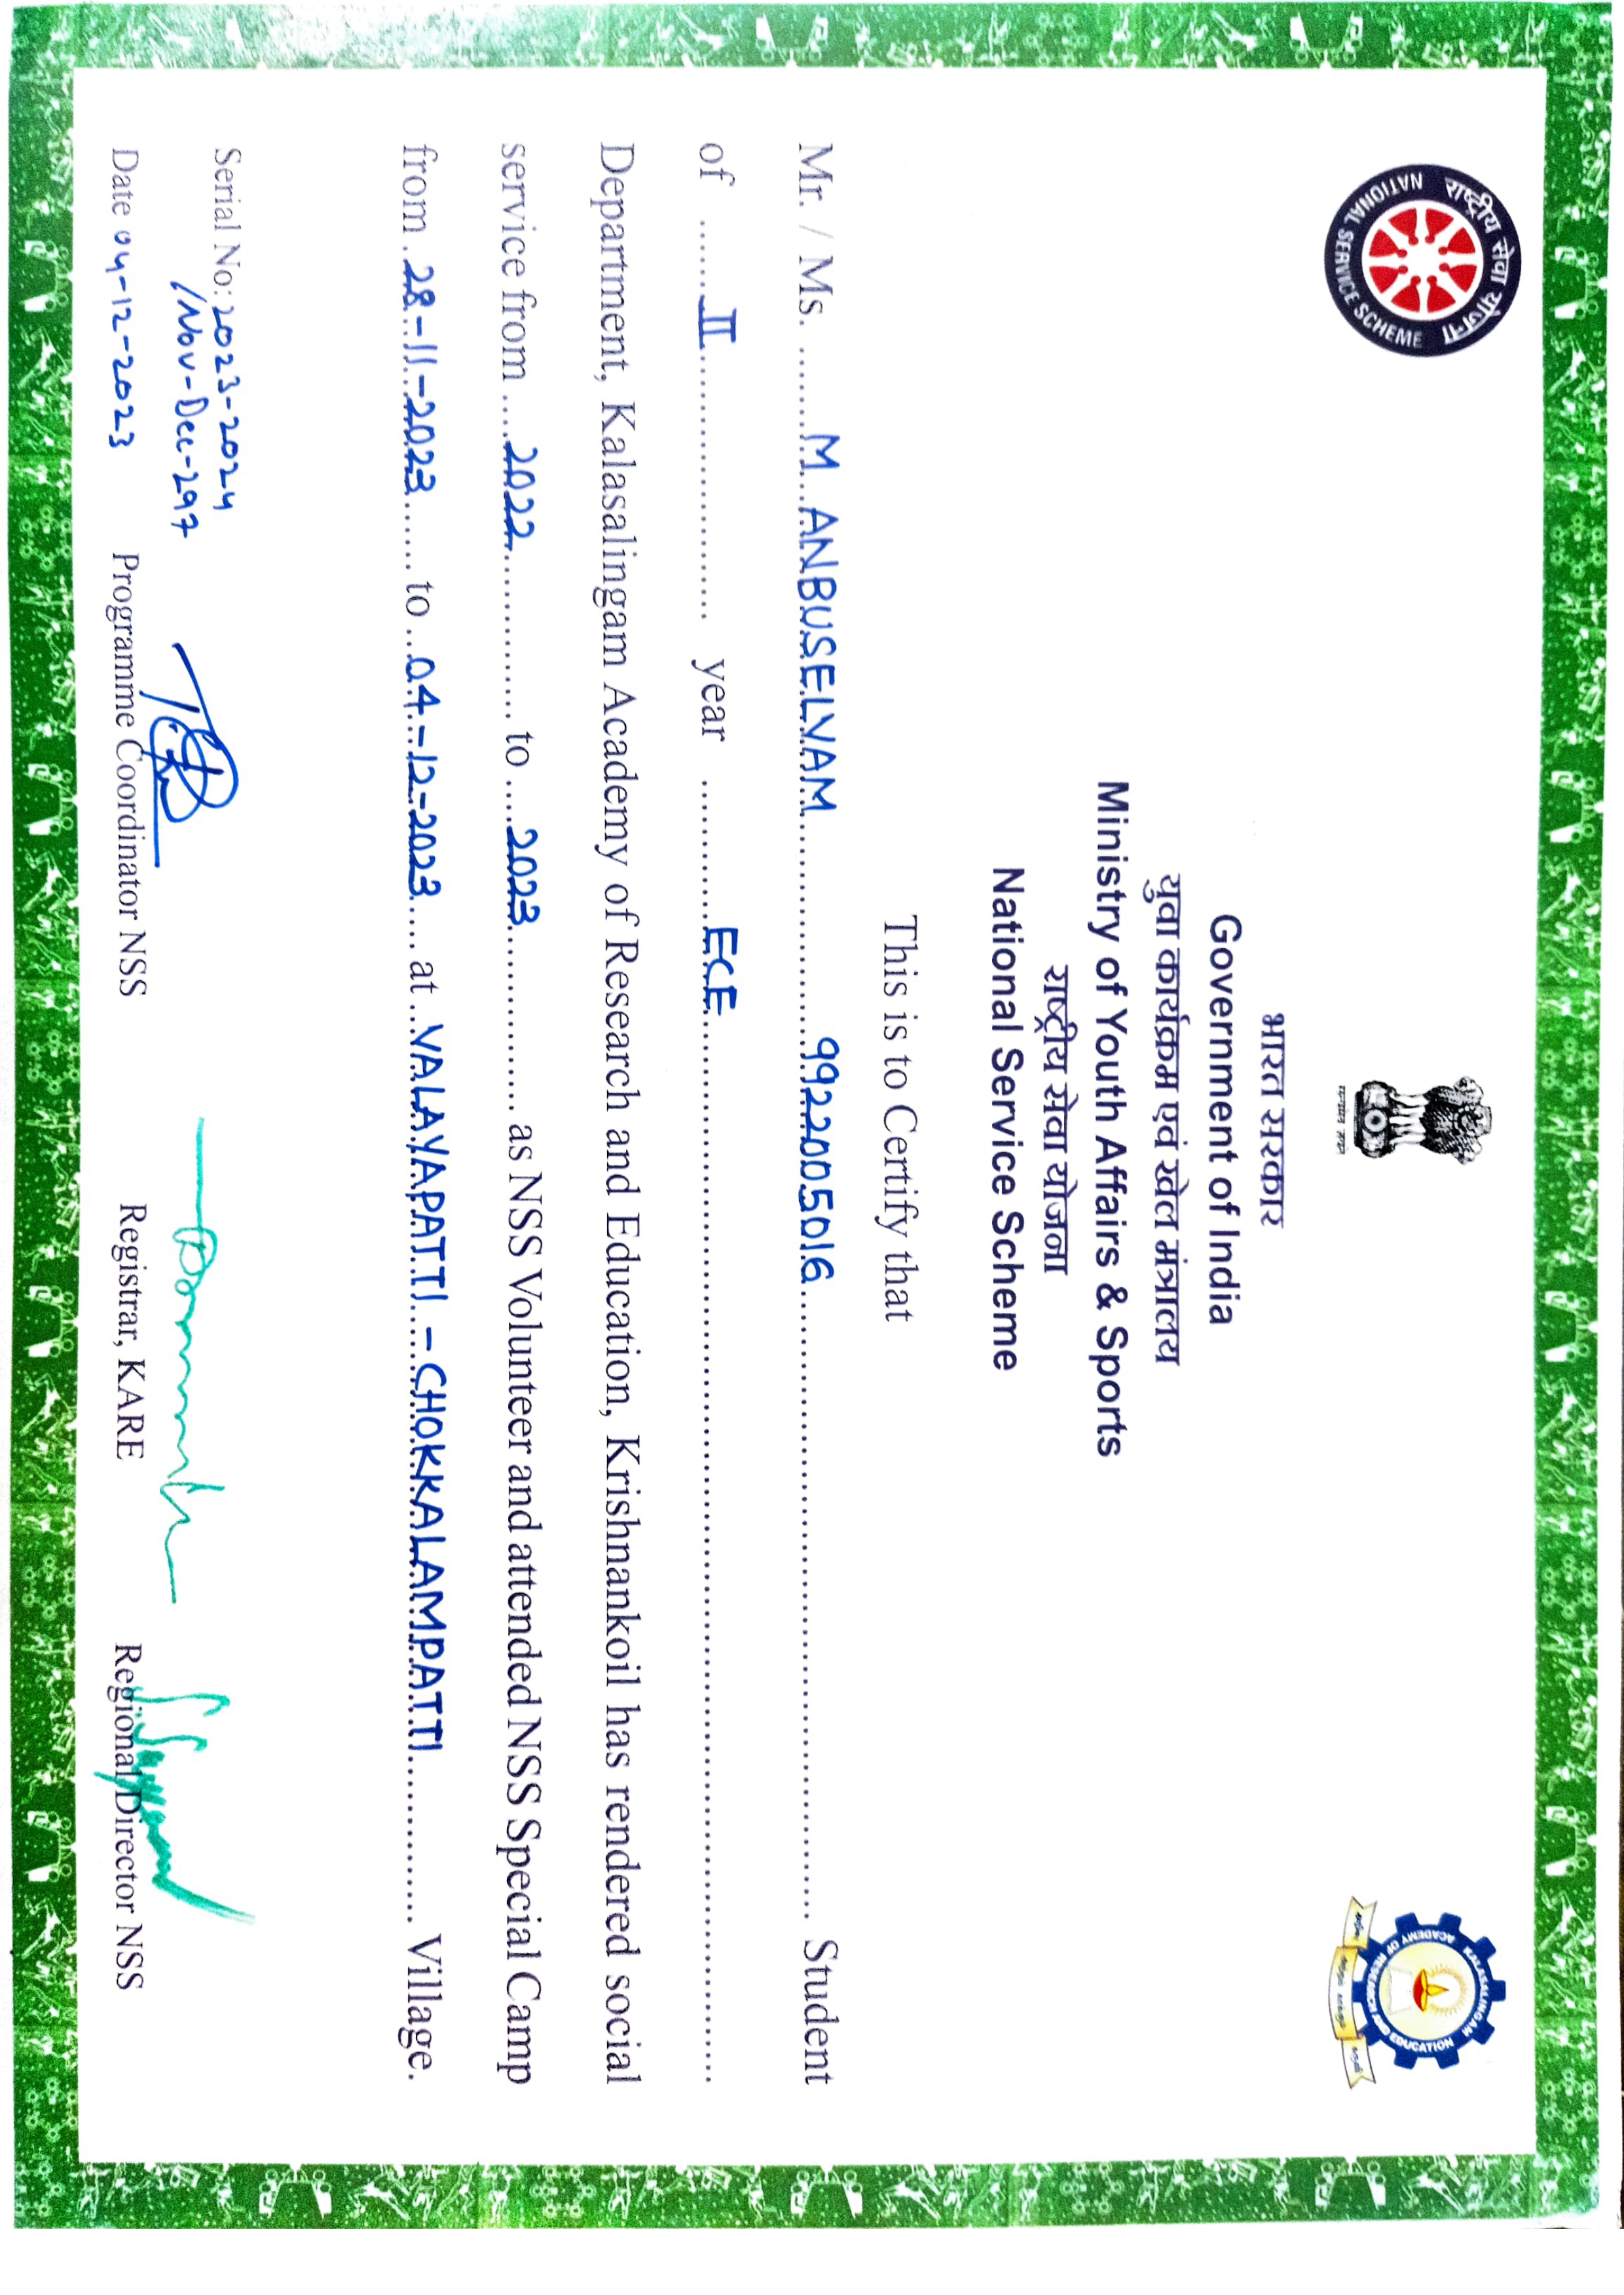 राष्ट्रीय सेवा योजना
NATIONAL SERVICE SCHEME
KALASALINGAM ACADEMY OF RESEARCH AND EDUCATION
भारत सरकार
Government of India
युवा कार्यक्रम एवं खेल मंत्रालय
Ministry of Youth Affairs & Sports
राष्ट्रीय सेवा योजना
National Service Scheme
This is to Certify that
Mr. / Ms. M ANBUSELVAM 9922005016 Student
of II year ECE
Department, Kalasalingam Academy of Research and Education, Krishnankoil has rendered social
service from 2022 to 2023 as NSS Volunteer and attended NSS Special Camp
from 28-11-2023 to 04-12-2023 at VALAYAPATTI - CHOKKALAMPATTI Village.
Serial No: 2023-2024
/Nov-Dec-297
Date 04-12-2023 Programme Coordinator NSS Registrar, KARE Regional Director NSS